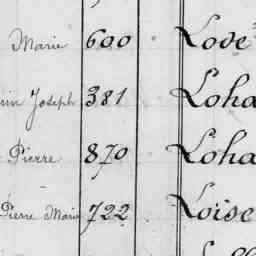 Marie 600 Lode
in Joseph 381 Loha
Pierre 870 Loha
Pierre Marie 722 Loise